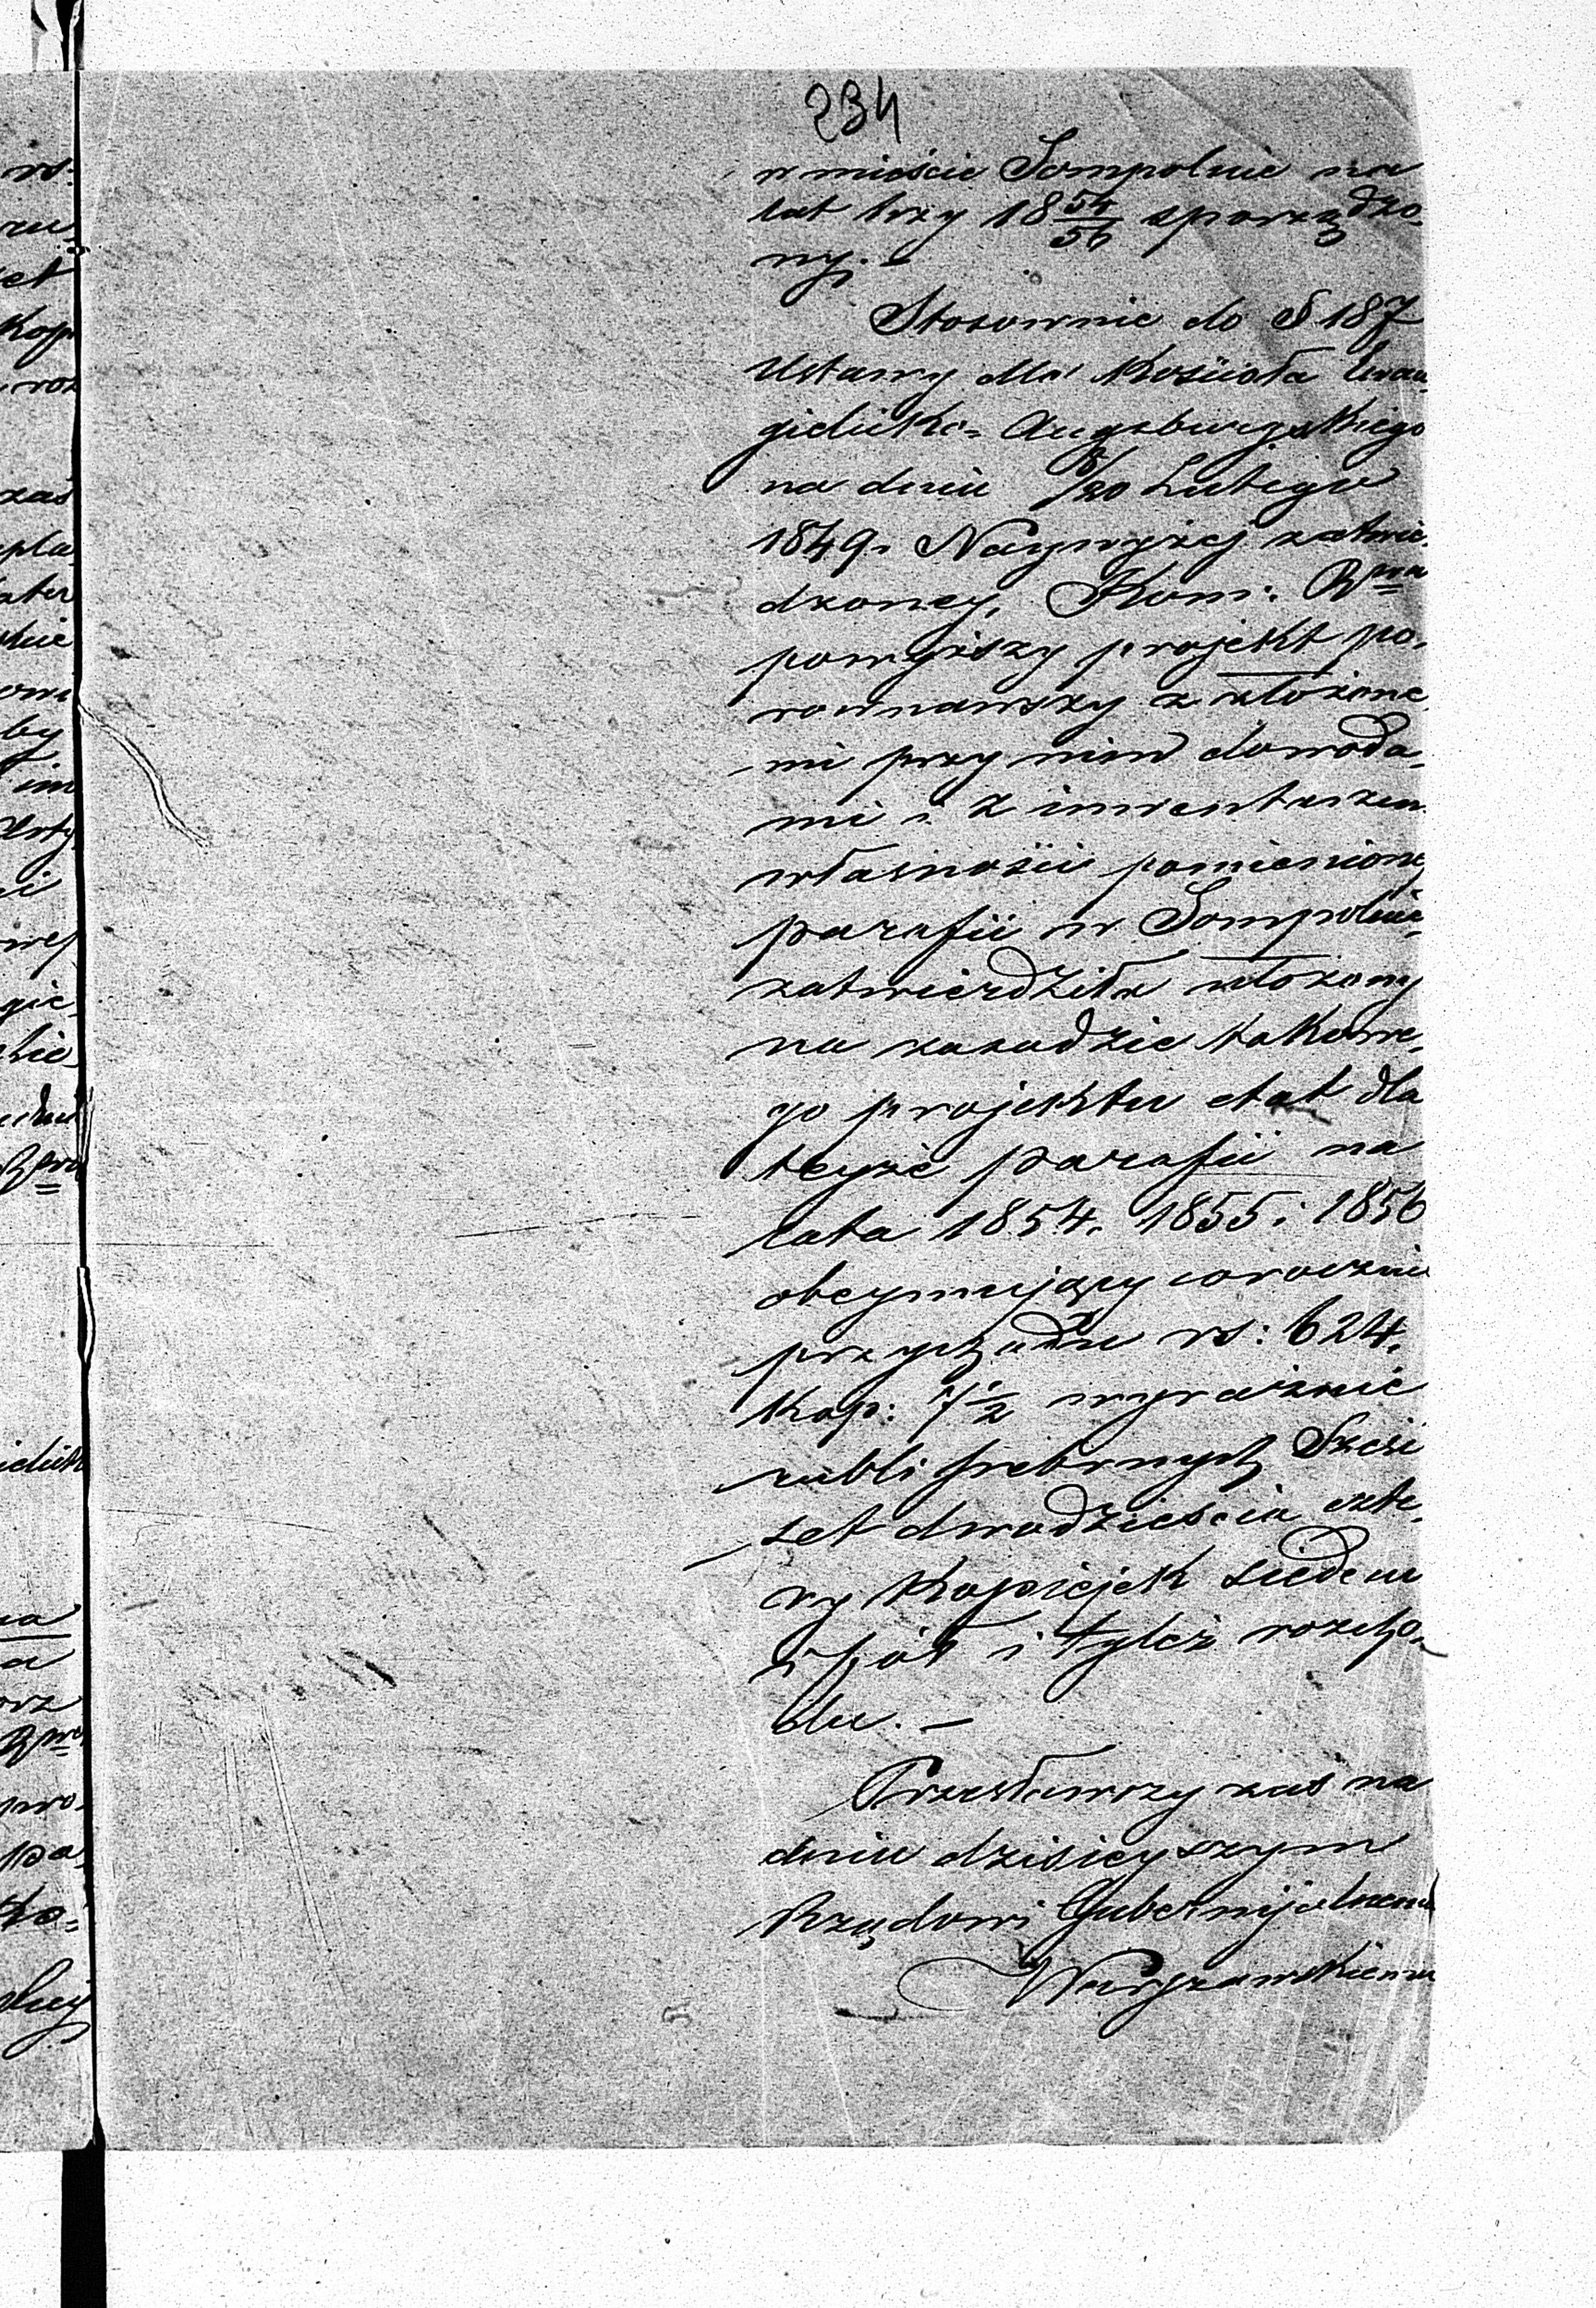 234
w mieście Sompolnie na
lat trzy 18 54/56 sporządzo-
ny. –
Stosownie do § 187
Ustawy dla Kościoła Ewan-
gielicko-Augsburgskiego
na dniu 8/20 Lutego
1849 r. Naywyżej zatwier-
dzoney, Kom: Rwa
powyższy projekt po-
rownawszy z złożone-
mi przy nim dowoda-
mi i z inwentarzem
własności pomienioney
parafii w Sompolnie
zatwierdziła ułożony
na zasadzie takowe-
go projektu etat dla
teyże parafii na
lata 1854. 1855 i 1856
obeymujący corocznie
przychodu rs: 624.
kop: 7 1/2 wyraźnie
rubli srebrnych Sześć
set dwadzieścia czte-
ry kopiejek siedem
i pół i tyleż rozcho-
du. –
Przesławszy zaś na
dniu dzisieyszym
Rządowi Gubernijalnemu
Warszawskiemu
rs:
ru-
Kop
roz
zaś
by
im
i
Rwa
na
a
Rwa
pro-
pa-
Ko-